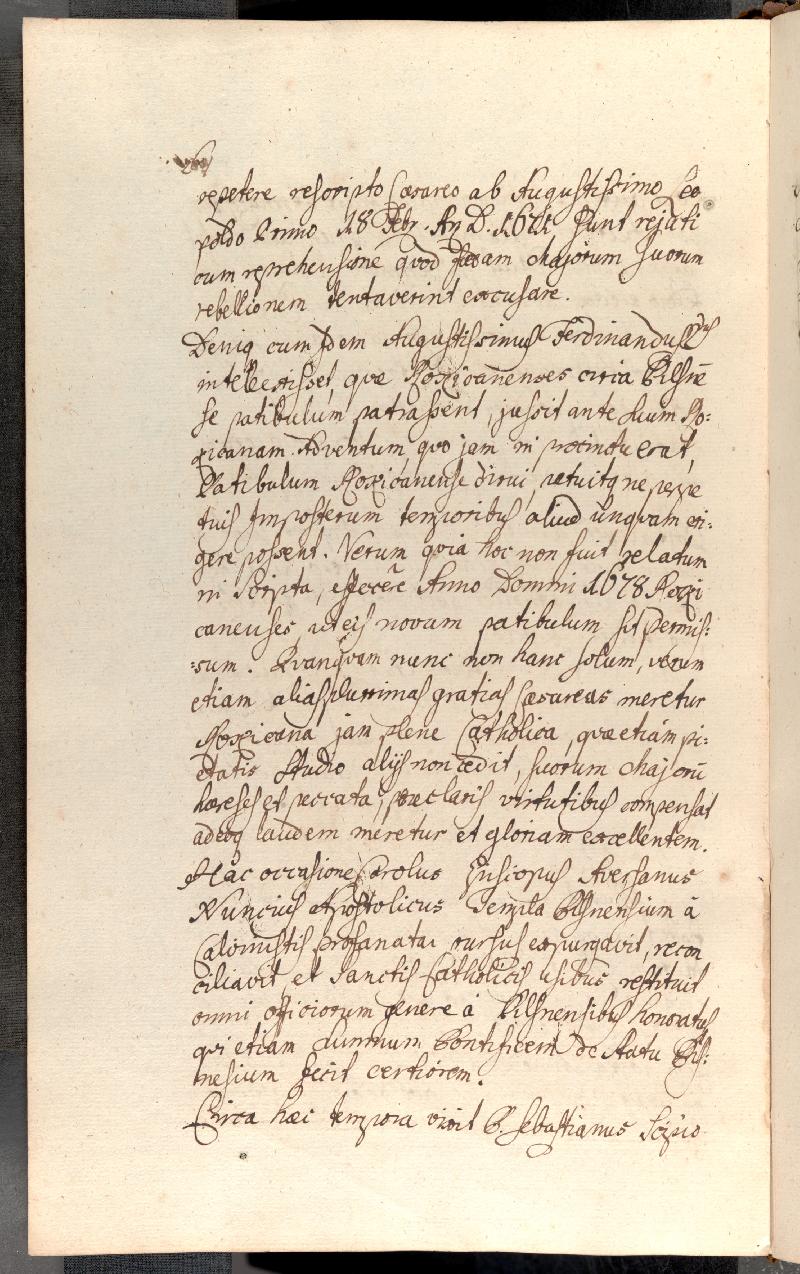 repetere rescripto Caesareo ab Augustissimo Leo
poldo Primo 18 Febr. An. D. 1671 sunt rejecti
cum reprehensione quod suam Majorum suorum
rebellionem tentaverint excusare.
Deniq cum Idem Augustissimus Ferdinandus 2dus
intellexisset, quae Rokicanenses circa Pilsnense
patibulum patrassent, jussit ante suum Ro:
kicanam Adventum, quo jam in procinctu erat,
Patibulum Rokicanense dirui, vetuitq ne perpe
tuis Imposterum temporibus aliud unquam eri:
gere possent. Verum quia hoc non fuit relatum
in scripta, effecere Anno Domini 1678 Roki
canenses, ut eis novum patibulum sit permis:
:sum. Quanquam nunc non hanc solum, verum
etiam alias plurimas gratias Caesareas meretur
Rokicana jam plene Catholica, quae etiam pi:
etatis studio alijs non cedit, suorum Majorū
haereses et peccata, praeclaris virtutibus compensat
adeoq laudem meretur et gloriam excellentem.
Hac occasione Carolus Episcopus Aversanus
Nuncius Apostolicus Templa Pilsnensium à
Calvinistis profanata rursus expurgavit, recon
ciliavit et Sanctis Catholicis usibus restituit
omni officiorum genere à Pilsnensibus honoratus
qui etiam summum Pontificem de statu Pils:
nesium fecit certiorem.
Circa haec tempora vixit P. Sebastianus